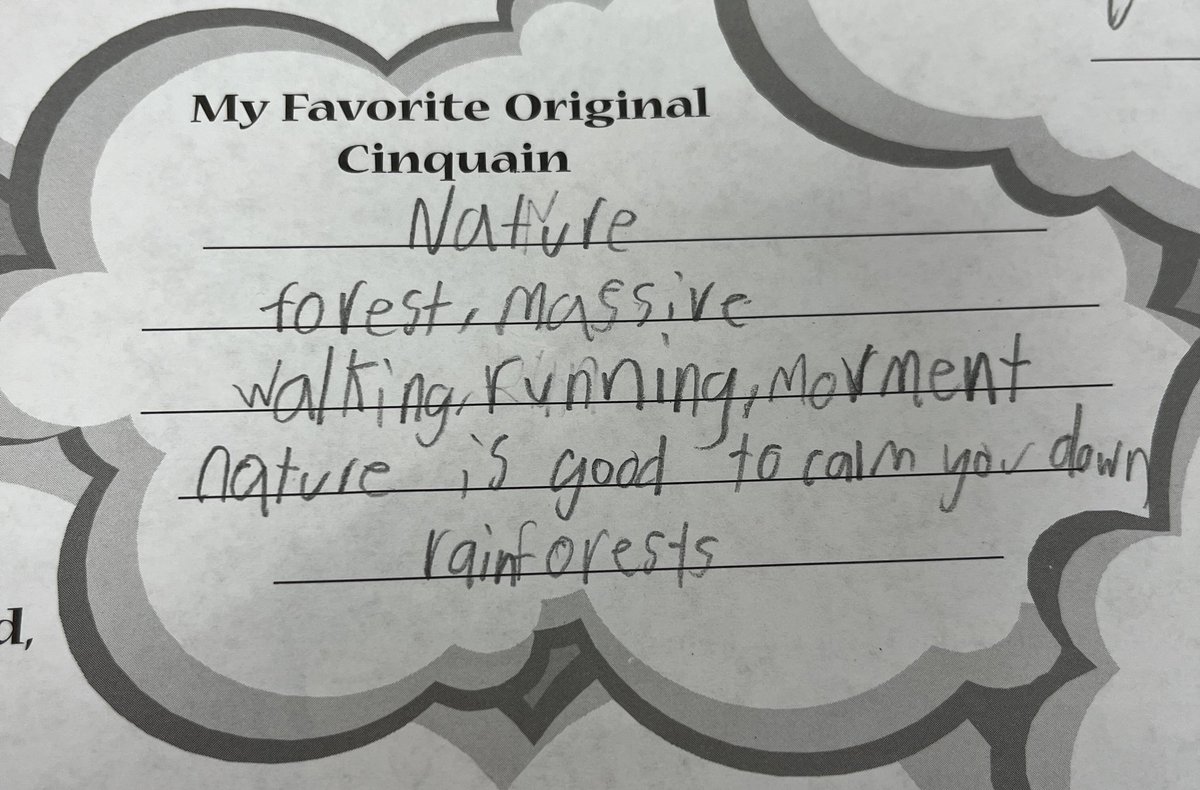 My Favorite Original
Cinquain
Nature
forest, massive
walking, running, movment
nature is good to calm you down
rainforests
d,